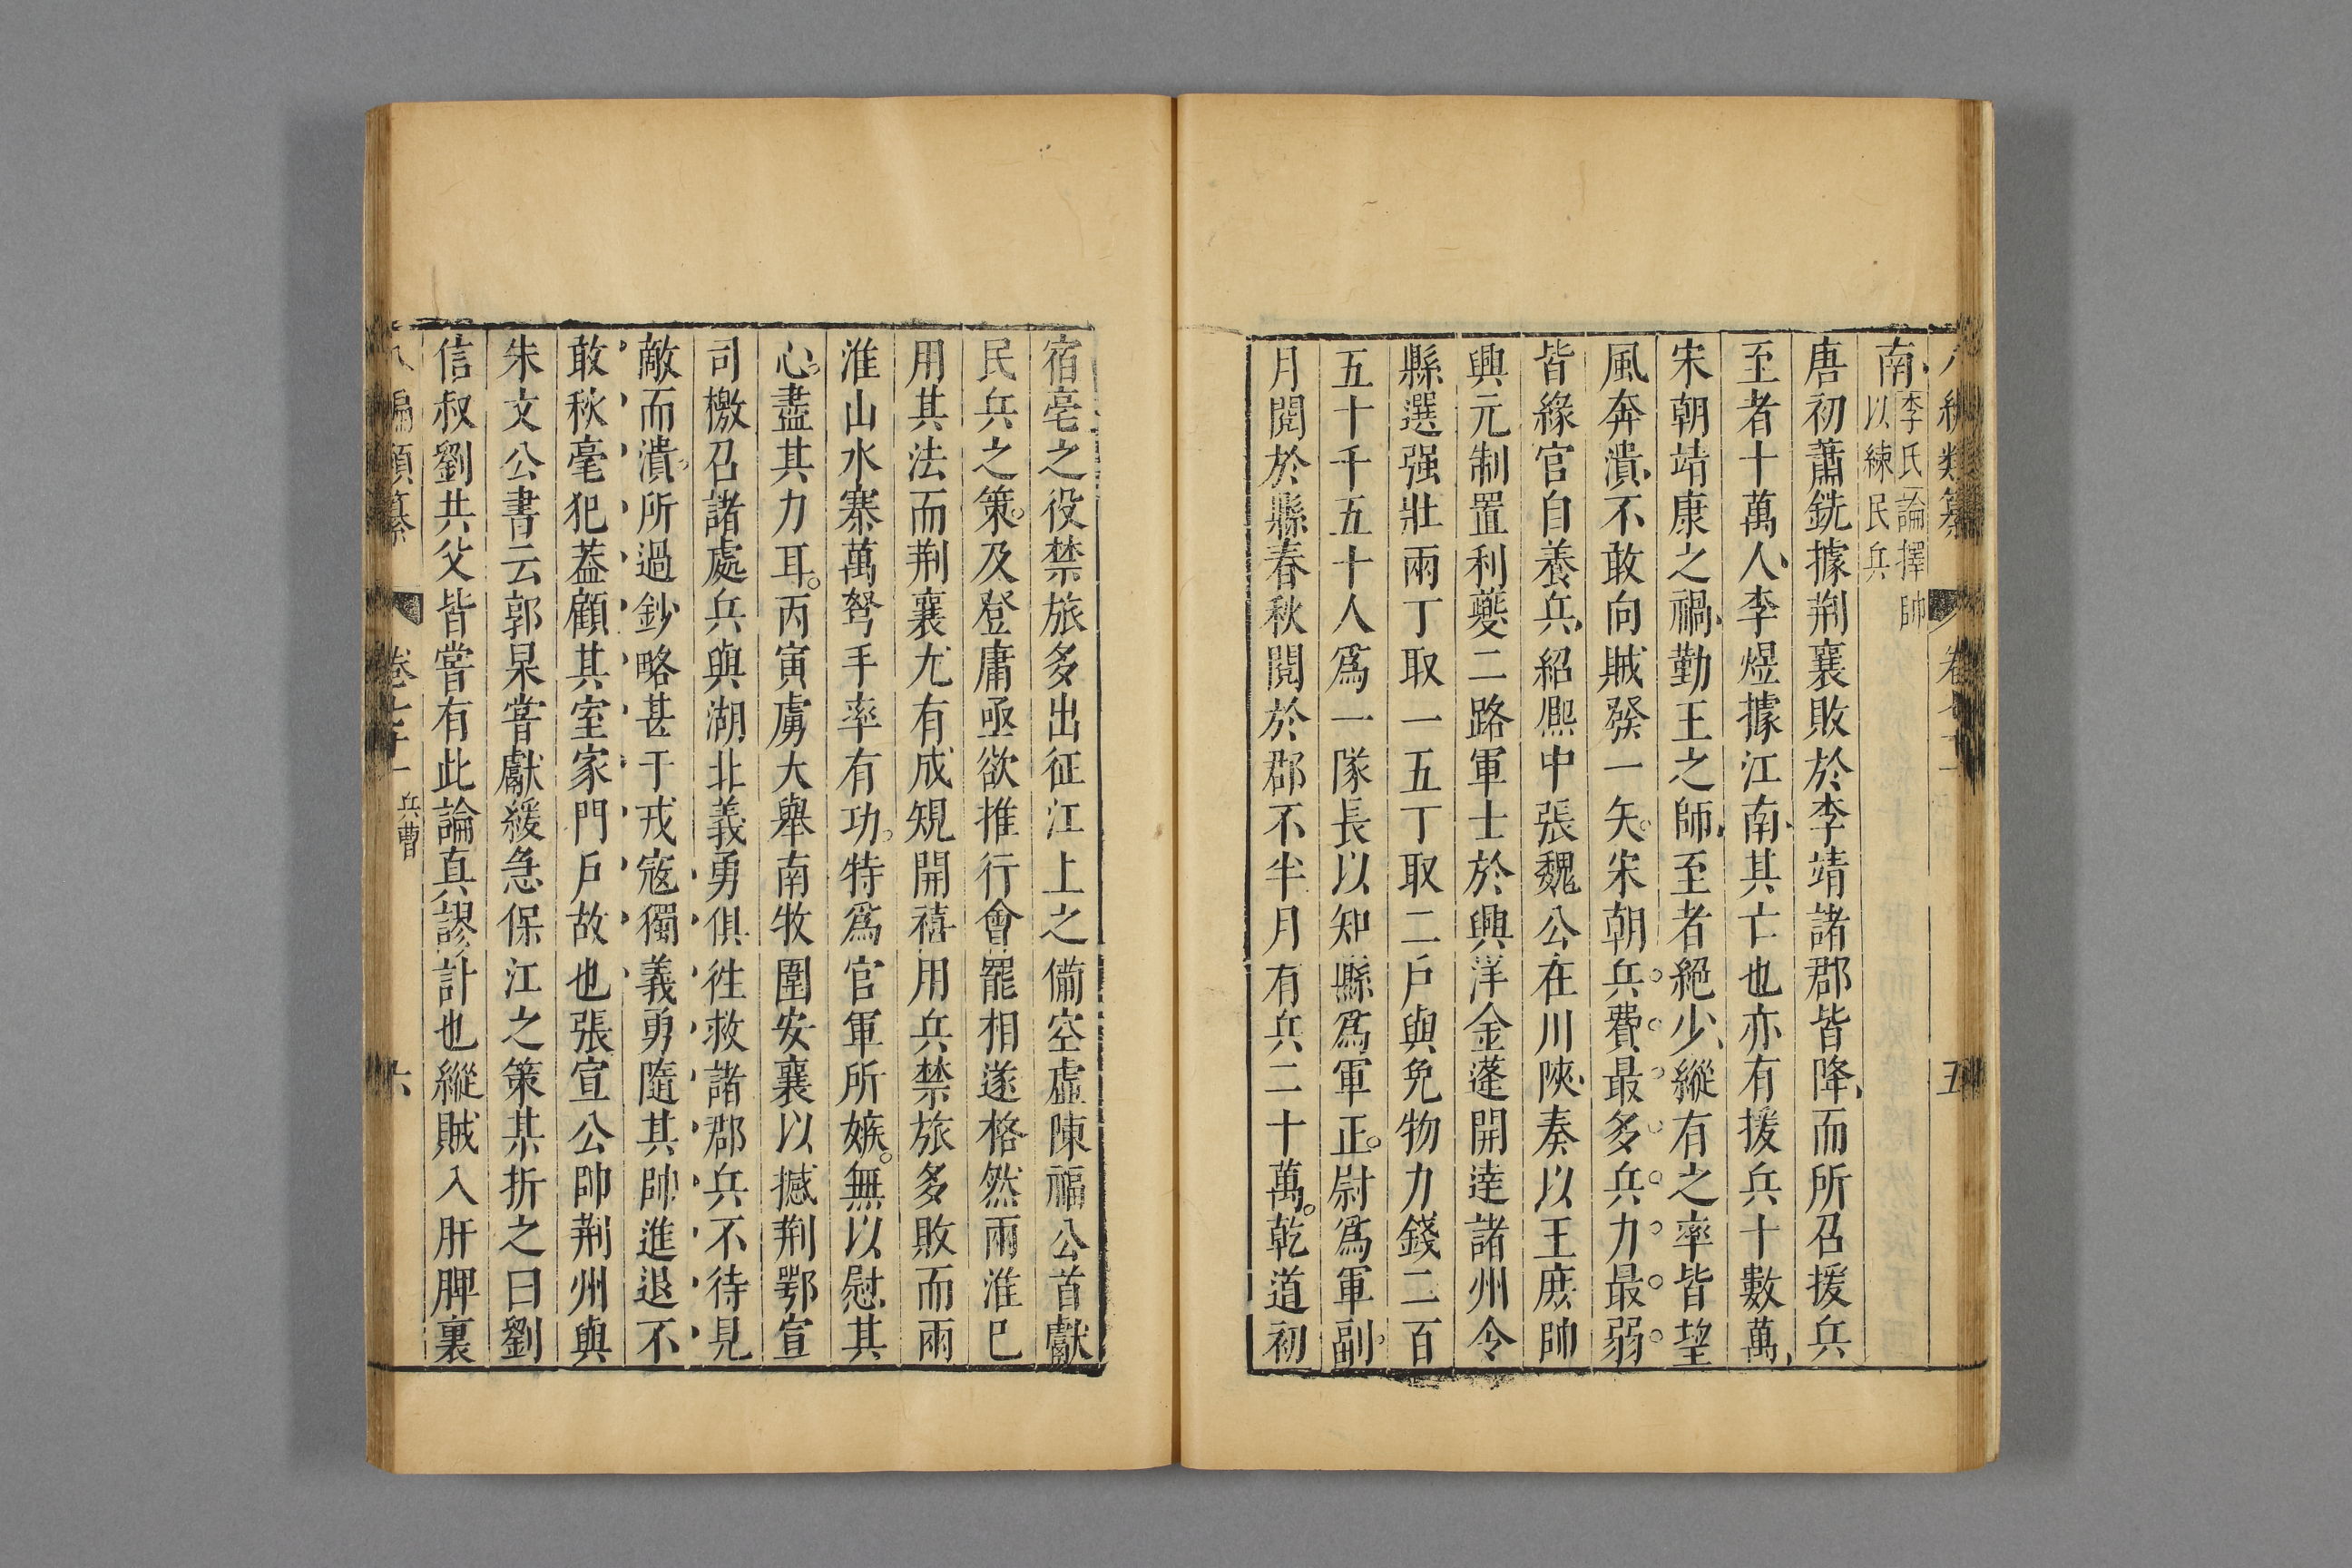 編類纂
五
南李氏論擇帥
以練民兵
唐初蕭銑據荆襄敗於李靖諸郡皆降而所召援兵
至者十萬人李煜據江南其亡也亦有援兵十數萬
宋朝靖康之禍勤王之師至者絕少縱有之率皆望
風奔潰不敢向賊發一矢宋朝兵費最多兵力最弱
皆緣官自養兵紹熈中張魏公在川陝奏以王庶帥
興元制置利夔二路軍士於興洋金蓬開達諸州令
縣選强壯兩丁取一五丁取二戶與免物力錢二百
五十千五十人爲一隊長以知縣爲軍正尉爲軍副
月閱於縣春秋閱於郡不半月有兵二十萬乾道初
宿亳之役禁旅多出征江上之備空虛陳福公首獻
民兵之策及登庸亟欲推行會罷相遂格然兩淮已
用其法而荆襄尤有成規開禧用兵禁旅多敗而兩
淮山水寨萬弩手率有功特爲官軍所嫉無以慰其
心盡其力耳丙寅虜大舉南牧圍安襄以撼荆鄂宣
司檄召諸處兵與湖北義勇俱徃救諸郡兵不待見
敵而潰所過鈔略甚于戎寇獨義勇隨其帥進退不
敢秋毫犯葢顧其室家門戶故也張宣公帥荆州與
朱文公書云郭杲嘗獻緩急保江之策某折之曰劉
信叔劉共父皆嘗有此論真謬計也縱賊入肝脾裏
八編類纂 卷七十一 兵曹 六